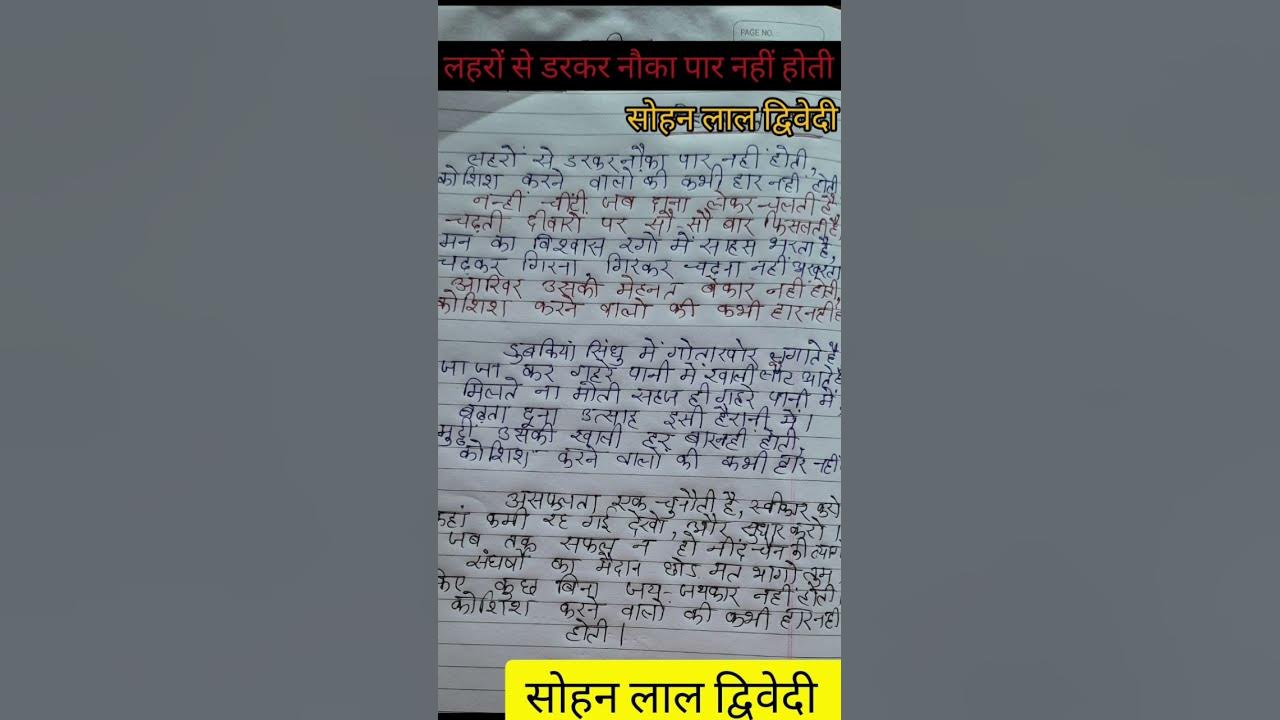 PAGE NO.
लहरों से डरकर नौका पार नहीं होती
सोहन लाल द्विवेदी
लहरों से डरकर नौका पार नहीं होती,
कोशिश करने वालों की कभी हार नहीं होती
नन्हीं चींटी जब दाना लेकर चलती है
चढ़ती दीवारों पर सौ-सौ बार फिसलती है
मन का विश्वास रगों में साहस भरता है,
चढ़कर गिरना गिरकर चढ़ना नहीं अखरता
आखिर उसकी मेहनत बेकार नहीं होती,
कोशिश करने वालों की कभी हार नहीं
डुबकियां सिंधु में गोताखोर लगाते है
जा जा कर गहरे पानी में खाली लौट आते है
मिलते ना मोती सहज ही गहरे पानी में,
बढ़ता दूना उत्साह इसी हैरानी में।
मुट्ठी उसकी खाली हर बार नहीं होती,
कोशिश करने वालों की कभी हार नहीं
असफलता एक चुनौती है, स्वीकार करो
कहां कमी रह गई देखो, और सुधार करो।
जब तक सफल न हो नींद-चैन की त्याग
संघर्षों का मैदान छोड़ मत भागो तुम
किए कुछ बिना जय-जयकार नहीं होती।
कोशिश करने वालों की कभी हार नहीं
होती।
सोहन लाल द्विवेदी